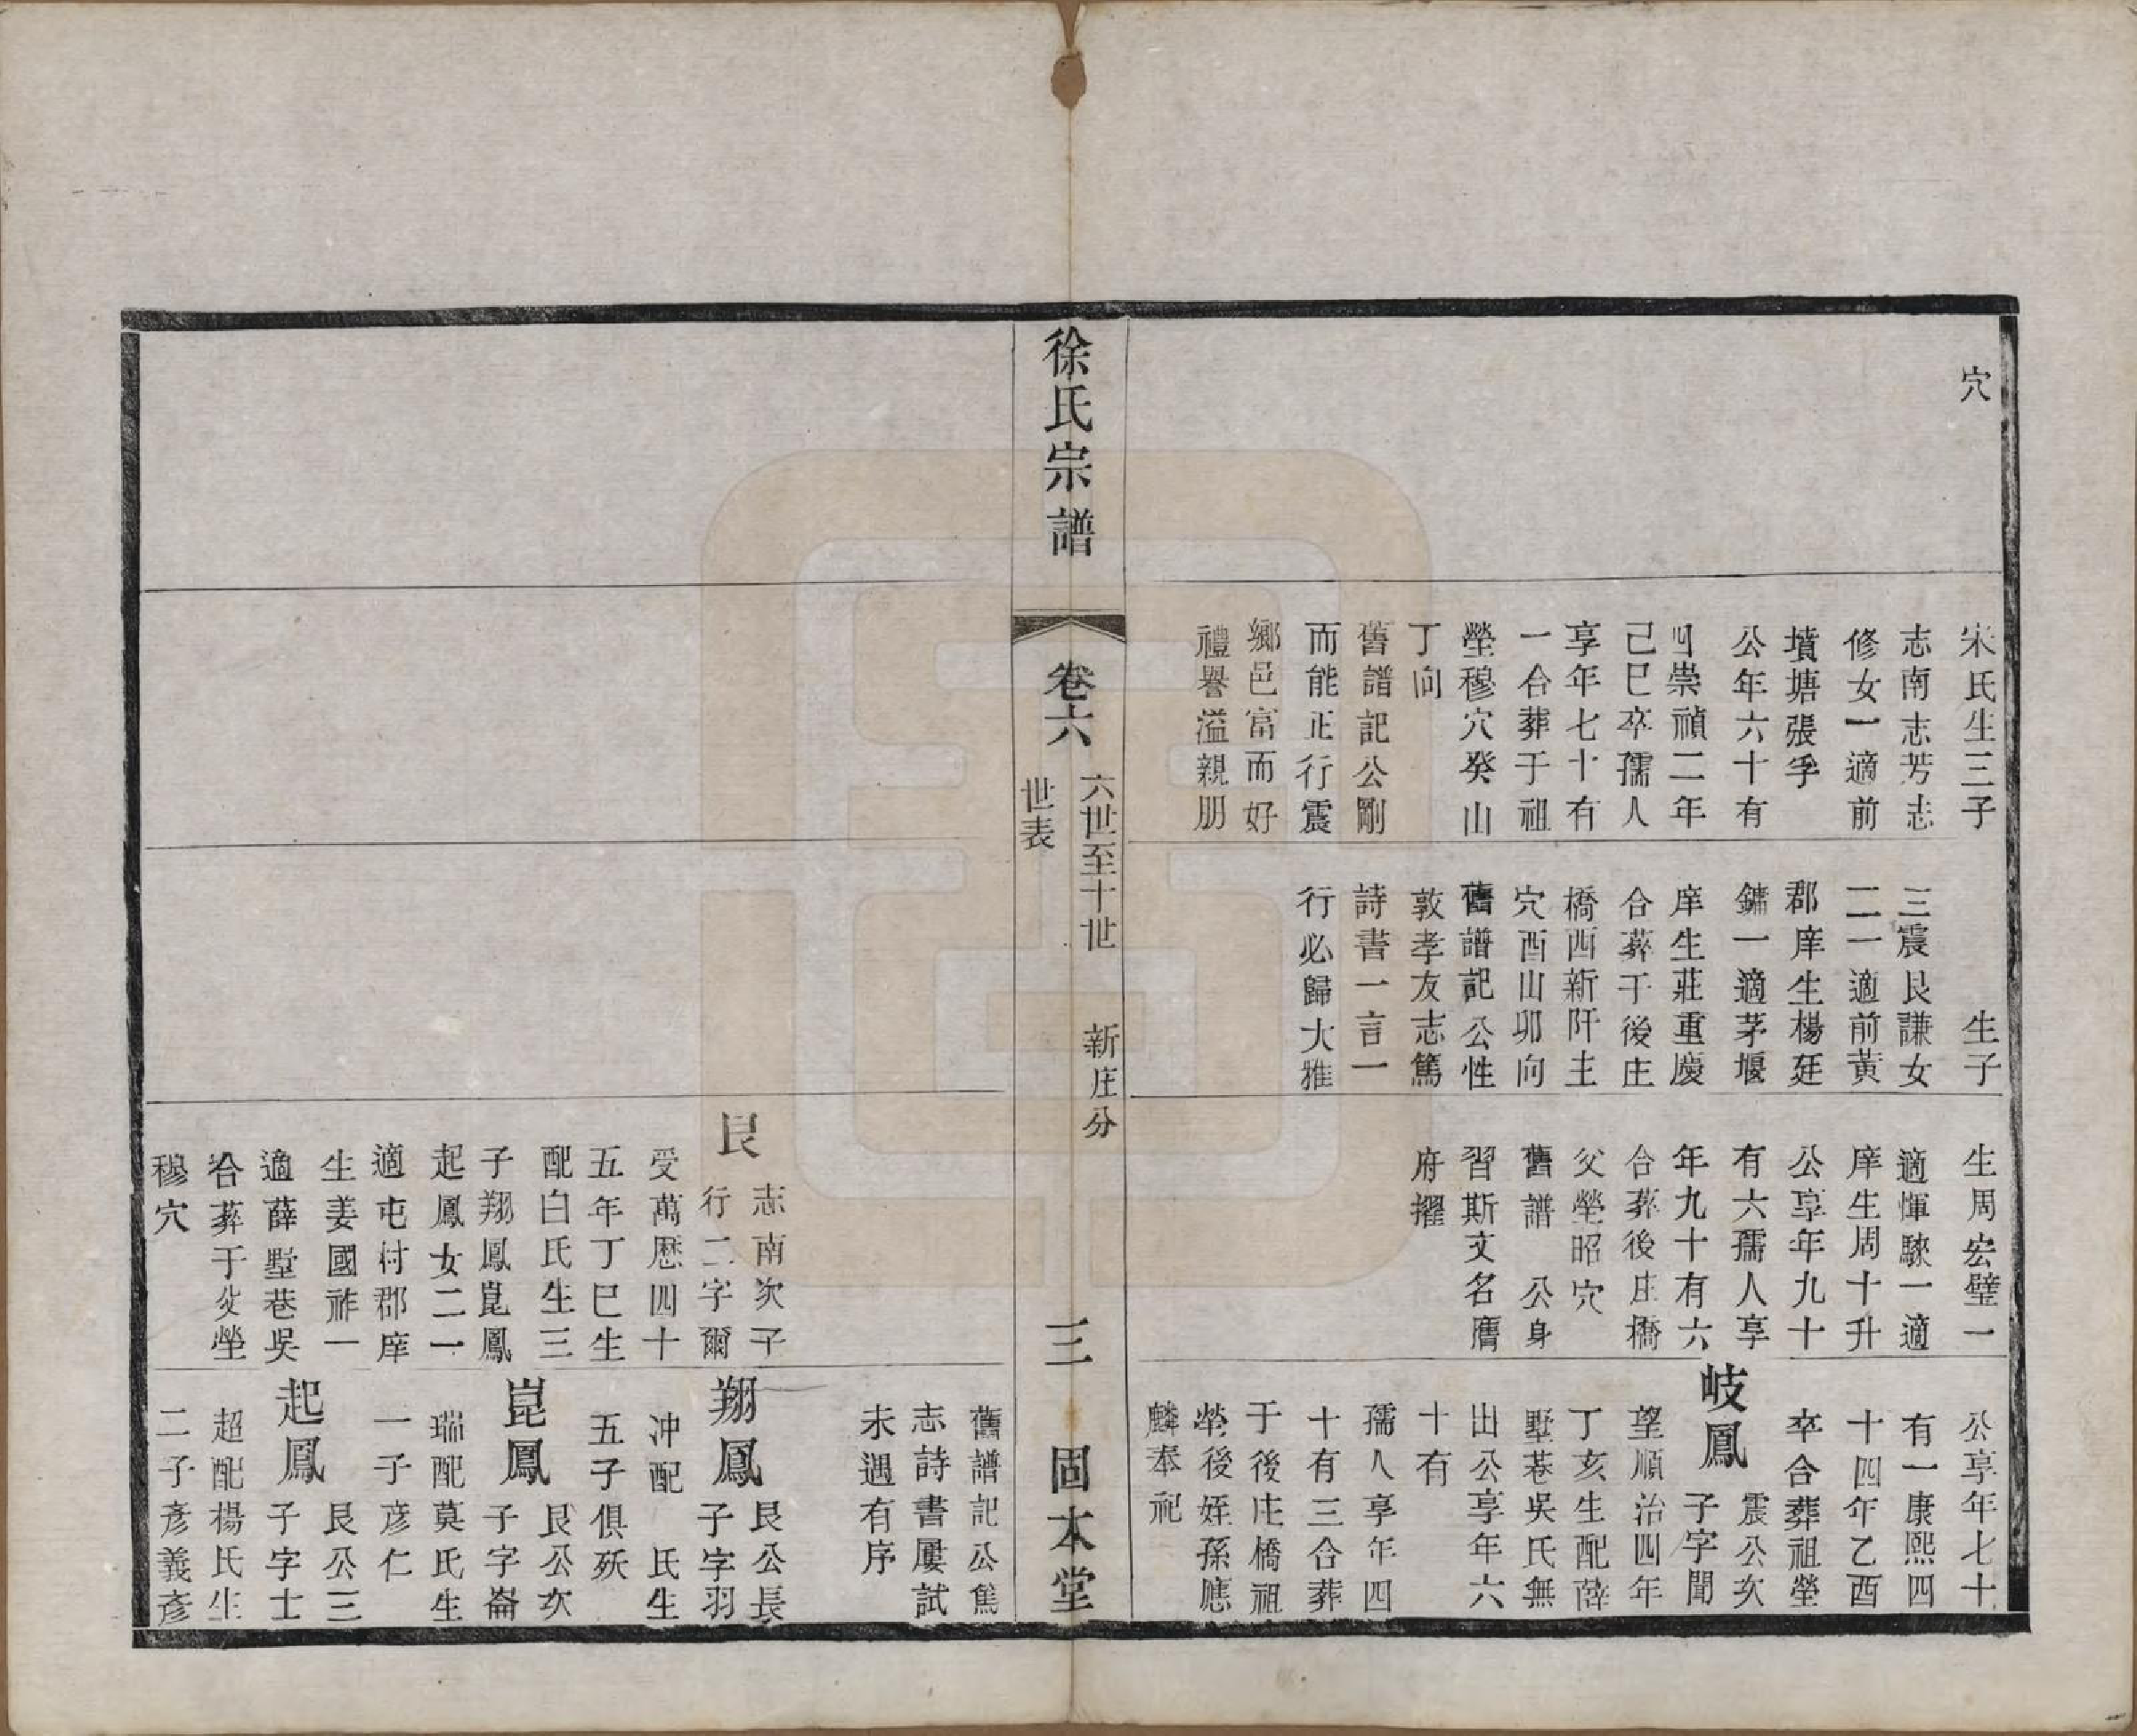 穴
宋氏生三子
志南志芳志
修女一適前
墳塘張孚
公年六十有
四崇禎二年
己巳卒孺人
享年七十有
一合葬于祖
塋穆穴癸山
丁向
舊譜記公剛
而能正行震
鄉邑富而好
禮譽溢親朋
生子
三震艮謙女
二一適前黃
郡庠生楊廷
鏞一適茅堰
庠生莊重慶
合葬于後庄
橋西新阡主
穴酉山卯向
舊譜記公性
敦孝友志篤
詩書一言一
行必歸大雅
生周宏璧一
適惲騋一適
庠生周十升
公享年九十
有六孺人享
年九十有六
合葬後庄橋
父塋昭穴
舊譜 公身
習斯文名膺
府擢
公享年七十
有一康熙四
十四年乙酉
卒合葬祖塋
岐鳳
震公次
子字聞
望順治四年
丁亥生配薛
墅巷吳氏無
出公享年六
十有
孺人享年四
十有三合葬
于後庄橋祖
塋後姪孫應
麟奉祀
徐氏宗譜
卷六
六世至十世
世表
新庄分
三
固本堂
艮
志南次子
行二字爾
受萬曆四十
五年丁巳生
配白氏生三
子翔鳳崑鳳
起鳳女二一
適屯村郡庠
生姜國祚一
適薛墅巷吳
合葬于父塋
穆穴
舊譜記公雋
志詩書屢試
未遇有序
翔鳳
艮公長
子字羽
冲配 氏生
五子俱殀
崑鳳
艮公次
子字崙
瑞配莫氏生
一子彦仁
起鳳
艮公三
子字士
超配楊氏生
二子彦義彦